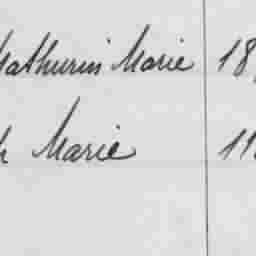 Mathurin Marie 18
h Marie 11